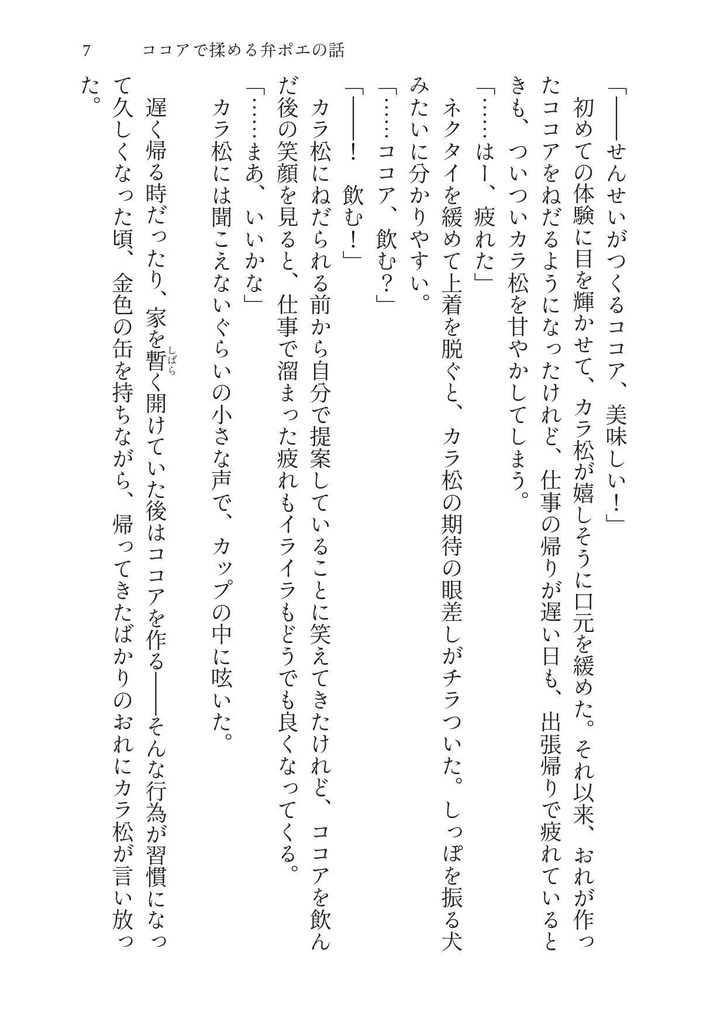 7 ココアで揉める弁ポエの話
「――せんせいがつくるココア、美味しい！」
初めての体験に目を輝かせて、カラ松が嬉しそうに口元を緩めた。それ以来、おれが作っ
たココアをねだるようになったけれど、仕事の帰りが遅い日も、出張帰りで疲れていると
きも、ついついカラ松を甘やかしてしまう。
「……はー、疲れた」
ネクタイを緩めて上着を脱ぐと、カラ松の期待の眼差しがチラついた。しっぽを振る犬
みたいに分かりやすい。
「……ココア、飲む？」
「――！　飲む！」
カラ松にねだられる前から自分で提案していることに笑えてきたけれど、ココアを飲ん
だ後の笑顔を見ると、仕事で溜まった疲れもイライラもどうでも良くなってくる。
「……まあ、いいかな」
カラ松には聞こえないぐらいの小さな声で、カップの中に呟いた。
遅く帰る時だったり、家を暫く開けていた後はココアを作る――そんな行為が習慣になっ
しばら
て久しくなった頃、金色の缶を持ちながら、帰ってきたばかりのおれにカラ松が言い放っ
た。